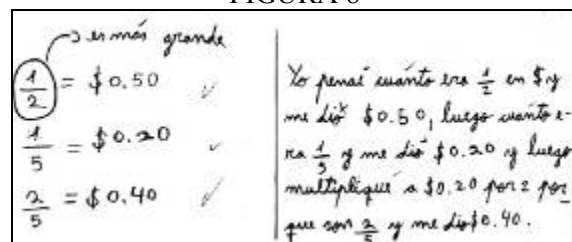 FIGURA 6
es más grande
1/2 = $0.50 ✓
1/5 = $0.20 ✓
2/5 = $0.40 ✓
Yo pensé cuánto era 1/2 en $ y
me dió $0.50, luego cuanto e-
ra 1/5 y me dió $0.20 y luego
multipliqué a $0.20 por 2 por
que son 2/5 y me dió $0.40.